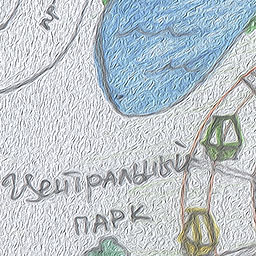 Центральный
парк